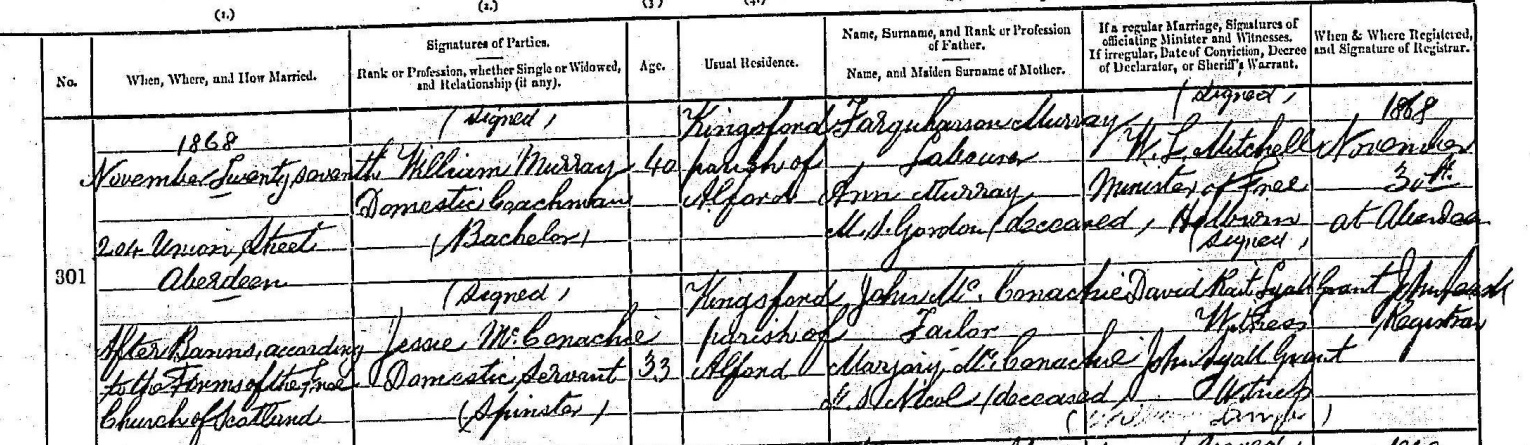 (1.)
(2.)
(3.)
(4.)
No.
When, Where, and How Married.
Signatures of Parties.
Rank or Profession, whether Single or Widowed,
and Relationship (if any).
Age.
Usual Residence.
Name, Surname, and Rank or Profession
of Father.
Name, and Maiden Surname of Mother.
If a regular Marriage, Signatures of
officiating Minister and Witnesses.
If irregular, Date of Conviction, Decree
of Declarator, or Sheriff's Warrant.
When & Where Registered,
and Signature of Registrar.
301
1868
November Twenty seventh
204 Union Street
Aberdeen
After Banns, according
to the Forms of the Free
Church of Scotland
(Signed)
William Murray
Domestic Coachman
(Bachelor)
(Signed)
Jessie McConachie
Domestic Servant
(Spinster)
40
33
Kingsford
parish of
Alford
Kingsford
parish of
Alford
Farquharson Murray
Labourer
Ann Murray
M.S. Gordon (deceased)
John McConachie
Tailor
Marjory McConachie
M.S. Nicol (deceased)
(Signed)
W. L. Mitchell
Minister of Free
Holburn
(Signed)
David Rait Lyall Grant
Witness
John Lyall Grant
Witness
1868
November
30th
at Aberdeen
John
Registrar